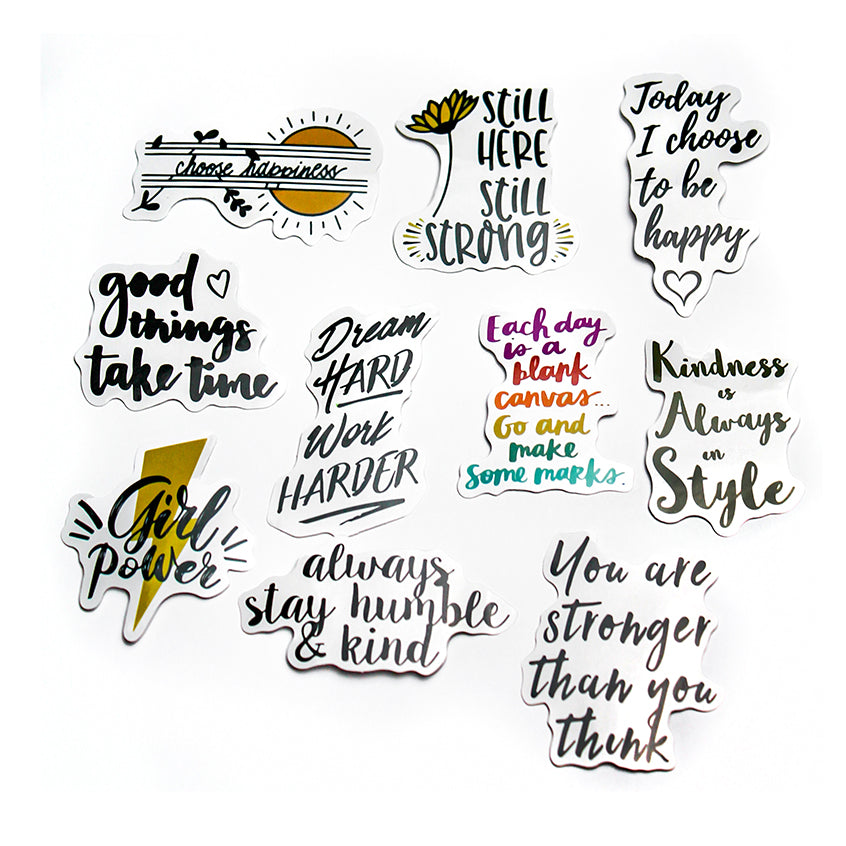 choose happiness
STILL
HERE
STILL
STRONG
Today
I choose
to be
happy
good
things
take time
Dream
HARD
Work
HARDER
Each day
is a
blank
canvas...
Go and
make
some marks.
Kindness
is
Always
in
Style
Girl
Power
always
stay humble
& kind
You are
stronger
than you
think